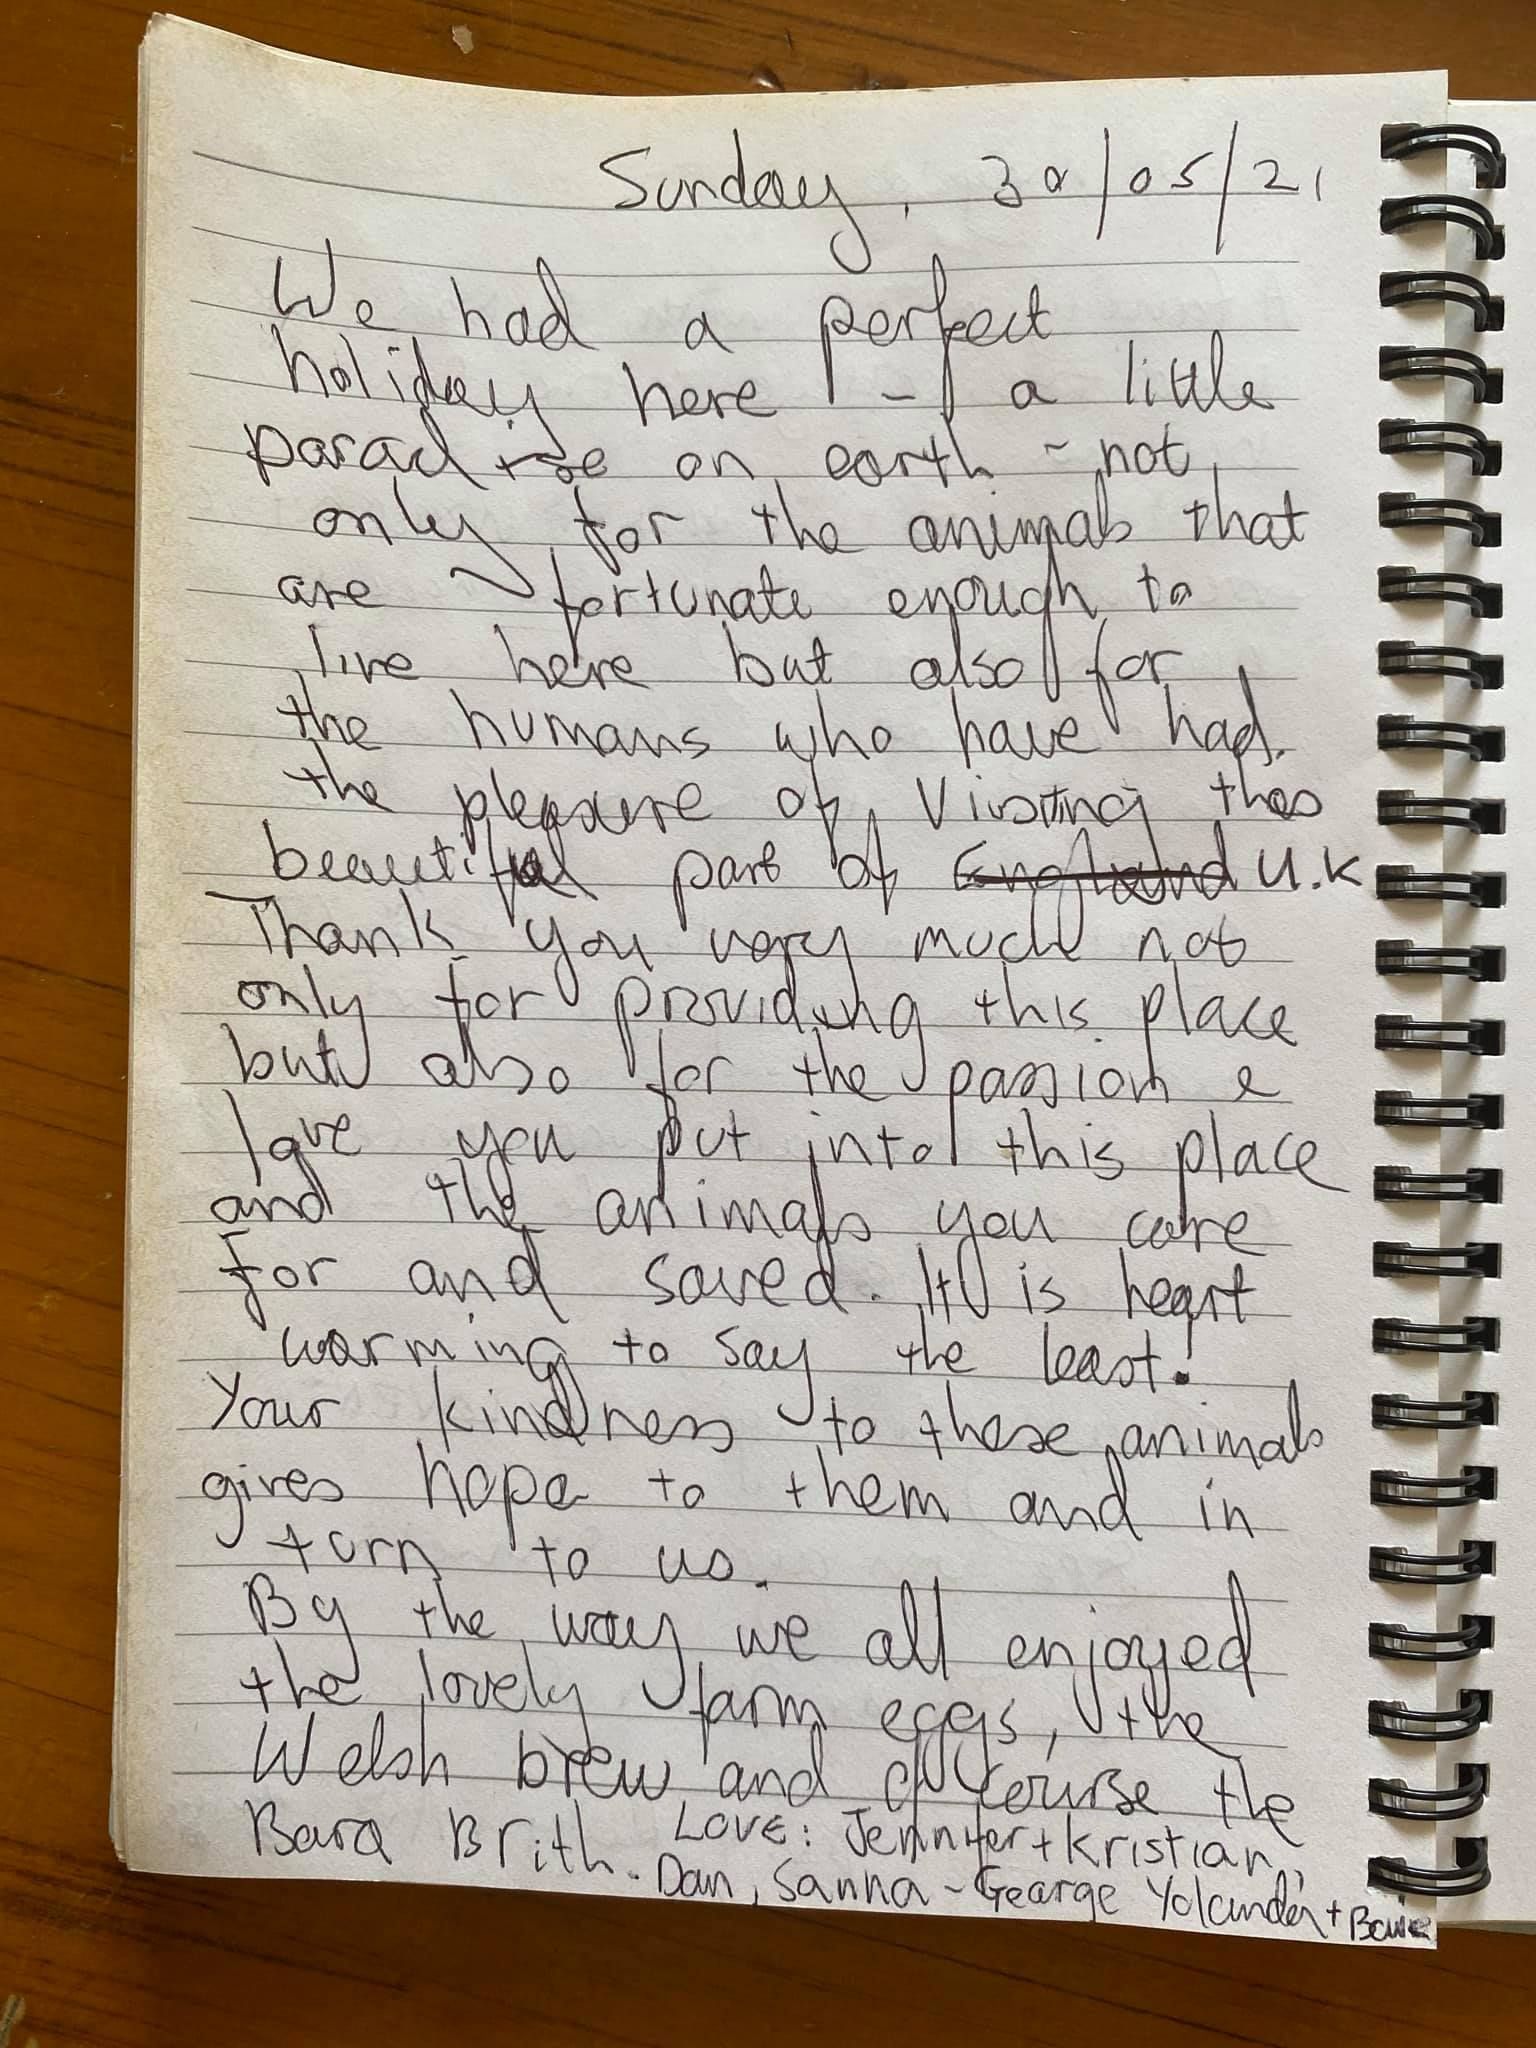 Sunday, 30/05/21
We had a perfect
holiday here - a little
paradise on earth - not
only for the animals that
are fortunate enough to
live here but also for
the humans who have had
the pleasure of visiting this
beautiful part of England U.K
Thank you very much not
only for providing this place
but also for the passion &
love you put into this place
and the animals you care
for and saved. It is heart
warming to say the least!
Your kindness to these animals
gives hope to them and in
turn to us.
By the way we all enjoyed
the lovely farm eggs, the
Welsh brew and of course the
Bara Brith. Love: Jennifer + Kristian,
Dan, Sanna - George Yolanda +